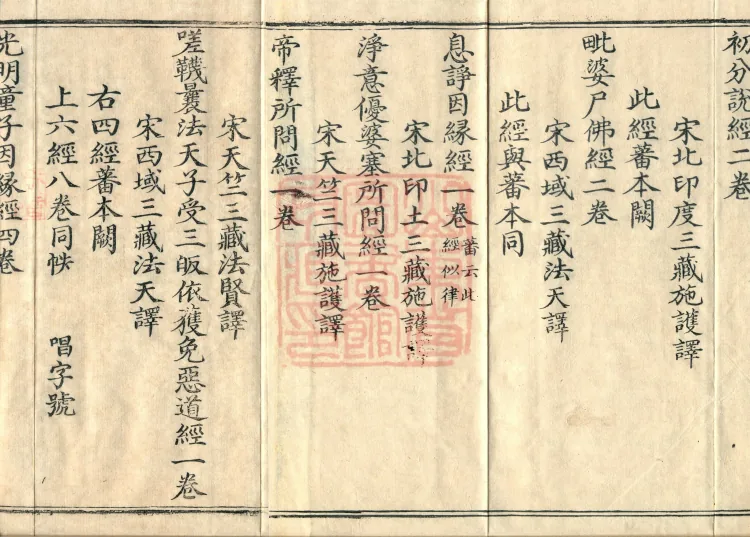 初分說經二卷
宋北印度三藏施護譯
此經蕃本闕
毗婆尸佛經二卷
宋西域三藏法天譯
此經與蕃本同
息諍因緣經一卷 蕃云此經似律
宋北印土三藏施護譯
淨意優婆塞所問經一卷
宋天竺三藏施護譯
帝釋所問經一卷
宋天竺三藏法賢譯
嗟韈曩法天子受三皈依獲免惡道經一卷
宋西域三藏法天譯
右四經蕃本闕
上六經八卷同帙 唱字號
光明童子因緣經四卷